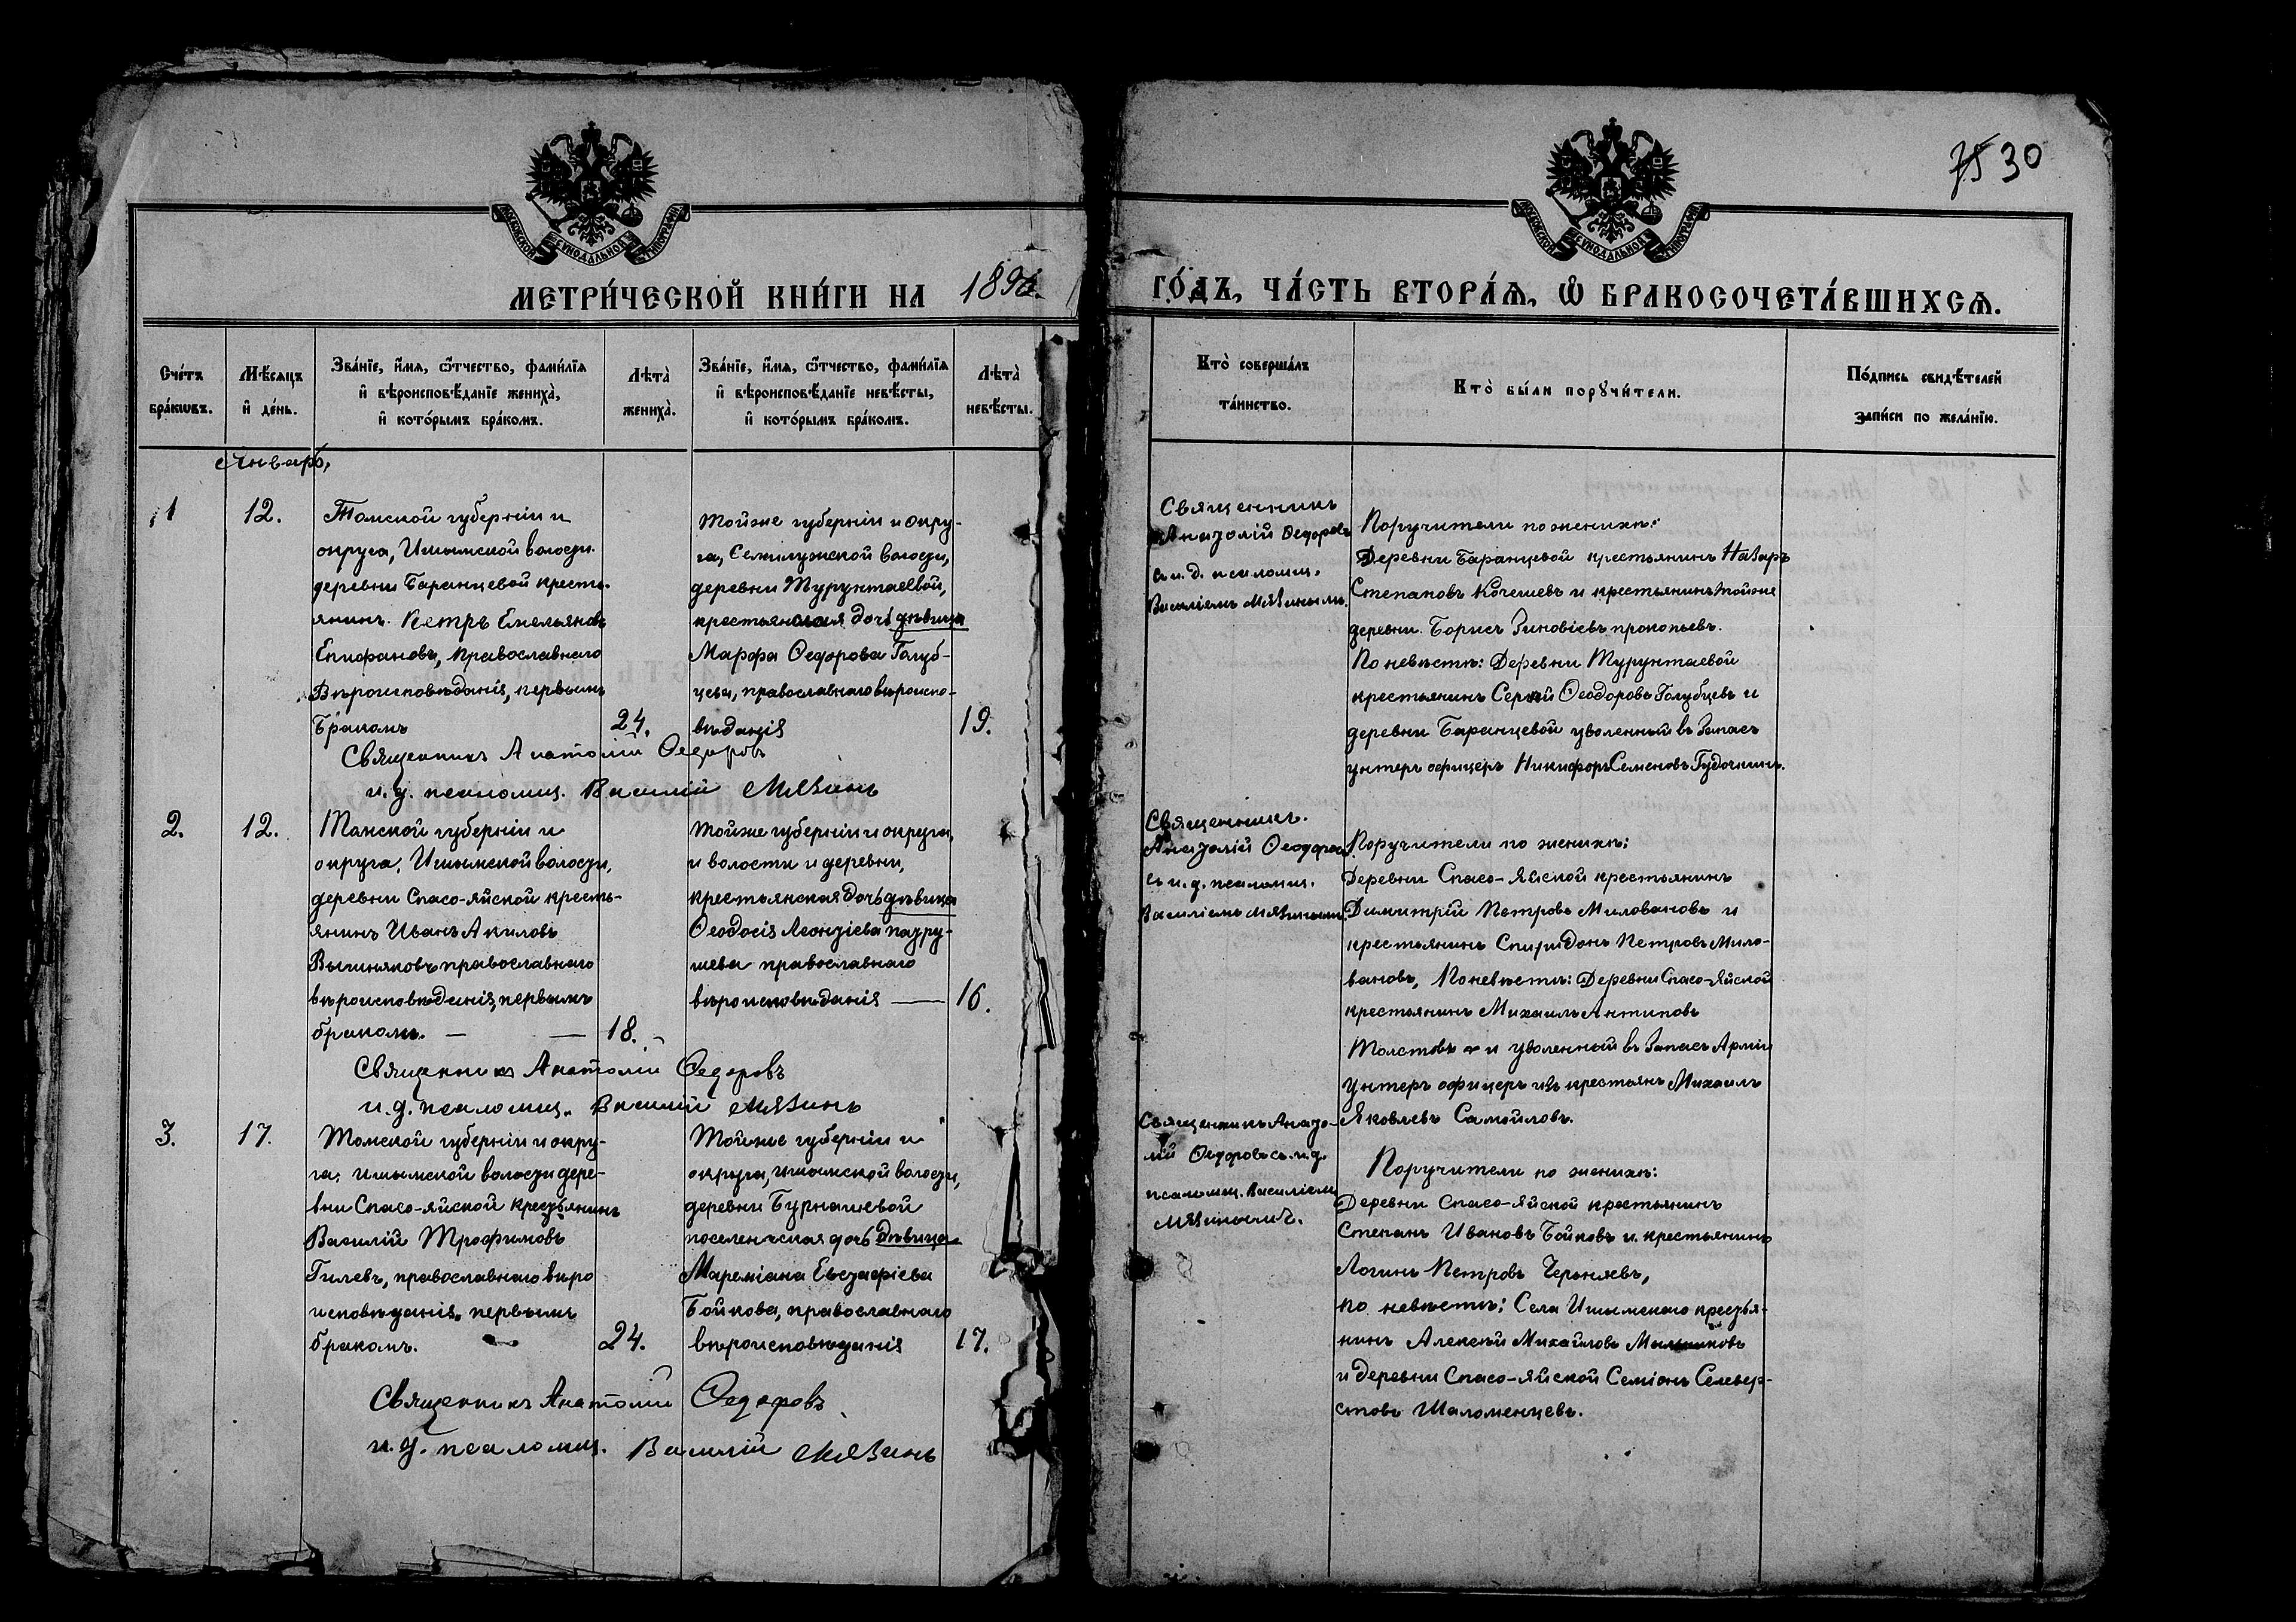 75 30
МОСКОВСКОЙ СѴНОДАЛЬНОЙ ТИПОГРАФІИ
МОСКОВСКОЙ СѴНОДАЛЬНОЙ ТИПОГРАФІИ
МЕТРИ́ЧЕСКОЙ КНИ́ГИ НА 189
ГО́ДЪ, ЧА́СТЬ ВТОРА́Ѧ, Ѡ҆ БРАКОСОЧЕТА́ВШИХСѦ.
Сче́тъ бра́кѡвъ.
Мѣ́сяцъ и҆ де́нь.
Зва́нїе, и҆́мѧ, ѻ҆́тчество, фами́лїѧ
и҆ вѣроисповѣ́данїе жениха̀,
и҆ кото́рымъ бра́комъ.
Лѣта̀ жениха̀.
Зва́нїе, и҆́мѧ, ѻ҆́тчество, фами́лїѧ
и҆ вѣроисповѣ́данїе невѣ́сты,
и҆ кото́рымъ бра́комъ.
Лѣта̀ невѣ́сты.
Кто̀ соверша́лъ
та́инство.
Кто̀ бы́ли порꙋчи́тели.
По́дпись свидѣ́телей
за́писи по жела́нїю.
Январь,
1
12.
Томской губерніи и
округа, Ишимской волости.
деревни Баранцевой кресть-
янинъ. Петръ Емельяновъ
Епифановъ, православнаго
Вѣроисповѣданія, первымъ
Бракомъ
24.
тойже губерніи и окру-
га, Семилужской волости,
деревни Турунтаевой,
крестьянская дочь дѣвица
Марфа Ѳедорова Голуб-
цева, православнаго вѣроиспо-
вѣданія
19.
Священникъ Анатолій Ѳедоровъ
и. д. псаломщ. Василій Мязинъ
Священникъ
Анатолій Ѳедоровъ
съ и. д. псаломщ.
Василіемъ Мязинымъ.
Поручители по женихѣ:
Деревни Баранцевой крестьянинъ Назаръ
Степановъ Кочешевъ и крестьянинъ тойже
деревни. Борисъ Зиновіевъ прокопьевъ.
По невѣстѣ: Деревни Турунтаевой
крестьянинъ Сергѣй Ѳеодоровъ Голубцевъ и
деревни Баранцевой уволенный въ Запасъ
унтеръ офицеръ Никифоръ Семеновъ Гудочкинъ.
2.
12.
Томской губерніи и
округа, Ишимской волости,
деревни Спасо-Яйской кресть-
янинъ Иванъ Акиловъ
православнаго
вѣроисповѣданія, первымъ
бракомъ. — —
18.
тойже губерніи и округа,
и волости и деревни,
крестьянская дочь дѣвица
Ѳеодосія Леонтіева патру-
шева православнаго
вѣроисповѣданія —
16.
Священникъ Анатолій Ѳедоровъ
и. д. псаломщ. Василій Мязинъ
Священникъ.
Анатолій Ѳеодоровъ
съ и. д. псаломщ.
Василіемъ Мязинымъ.
Поручители по женихѣ:
Деревни Спасо-Яйской крестьянинъ
Димитрій Петровъ Миловановъ и
крестьянинъ Спиридонъ Петровъ Мило-
вановъ, По невѣстѣ: Деревни Спасо-Яйской
крестьянинъ Михаилъ Антиповъ
Толстовъ и уволенный въ Запасъ Арміи
Унтеръ офицеръ изъ крестьянъ Михаилъ
Яковлевъ Самойловъ.
3.
17.
Томской губерніи и окру-
га, ишимской волости дере-
вни Спасо-яйской крестьянинъ
Василій Трофимовъ
Гилевъ, православнаго вѣро
исповѣданія, первымъ
бракомъ.
24.
Тойже губерніи и
округа, ишимской волости,
деревни Бурнашевой
поселенская дочь дѣвица
Мареміана Евстафіева
Бойкова, православнаго
вѣроисповѣданія
17.
Священникъ Анатолій Ѳедоровъ
и. д. псаломщ. Василій Мязинъ
Священникъ Анато-
лій Ѳедоровъ съ. и. д.
псаломщ. Василіемъ
Мязинымъ.
Поручители по женихѣ:
Деревни Спасо-Яйской крестьянинъ
Степанъ Ивановъ Бойковъ и. крестьянинъ
Логинъ Петровъ Черняевъ,
по невѣстѣ: Села Ишимскаго крестья-
нинъ Алексѣй Михайловъ
и деревни Спасо-Яйской Семіонъ Селивер-
стовъ Шаломенцевъ.